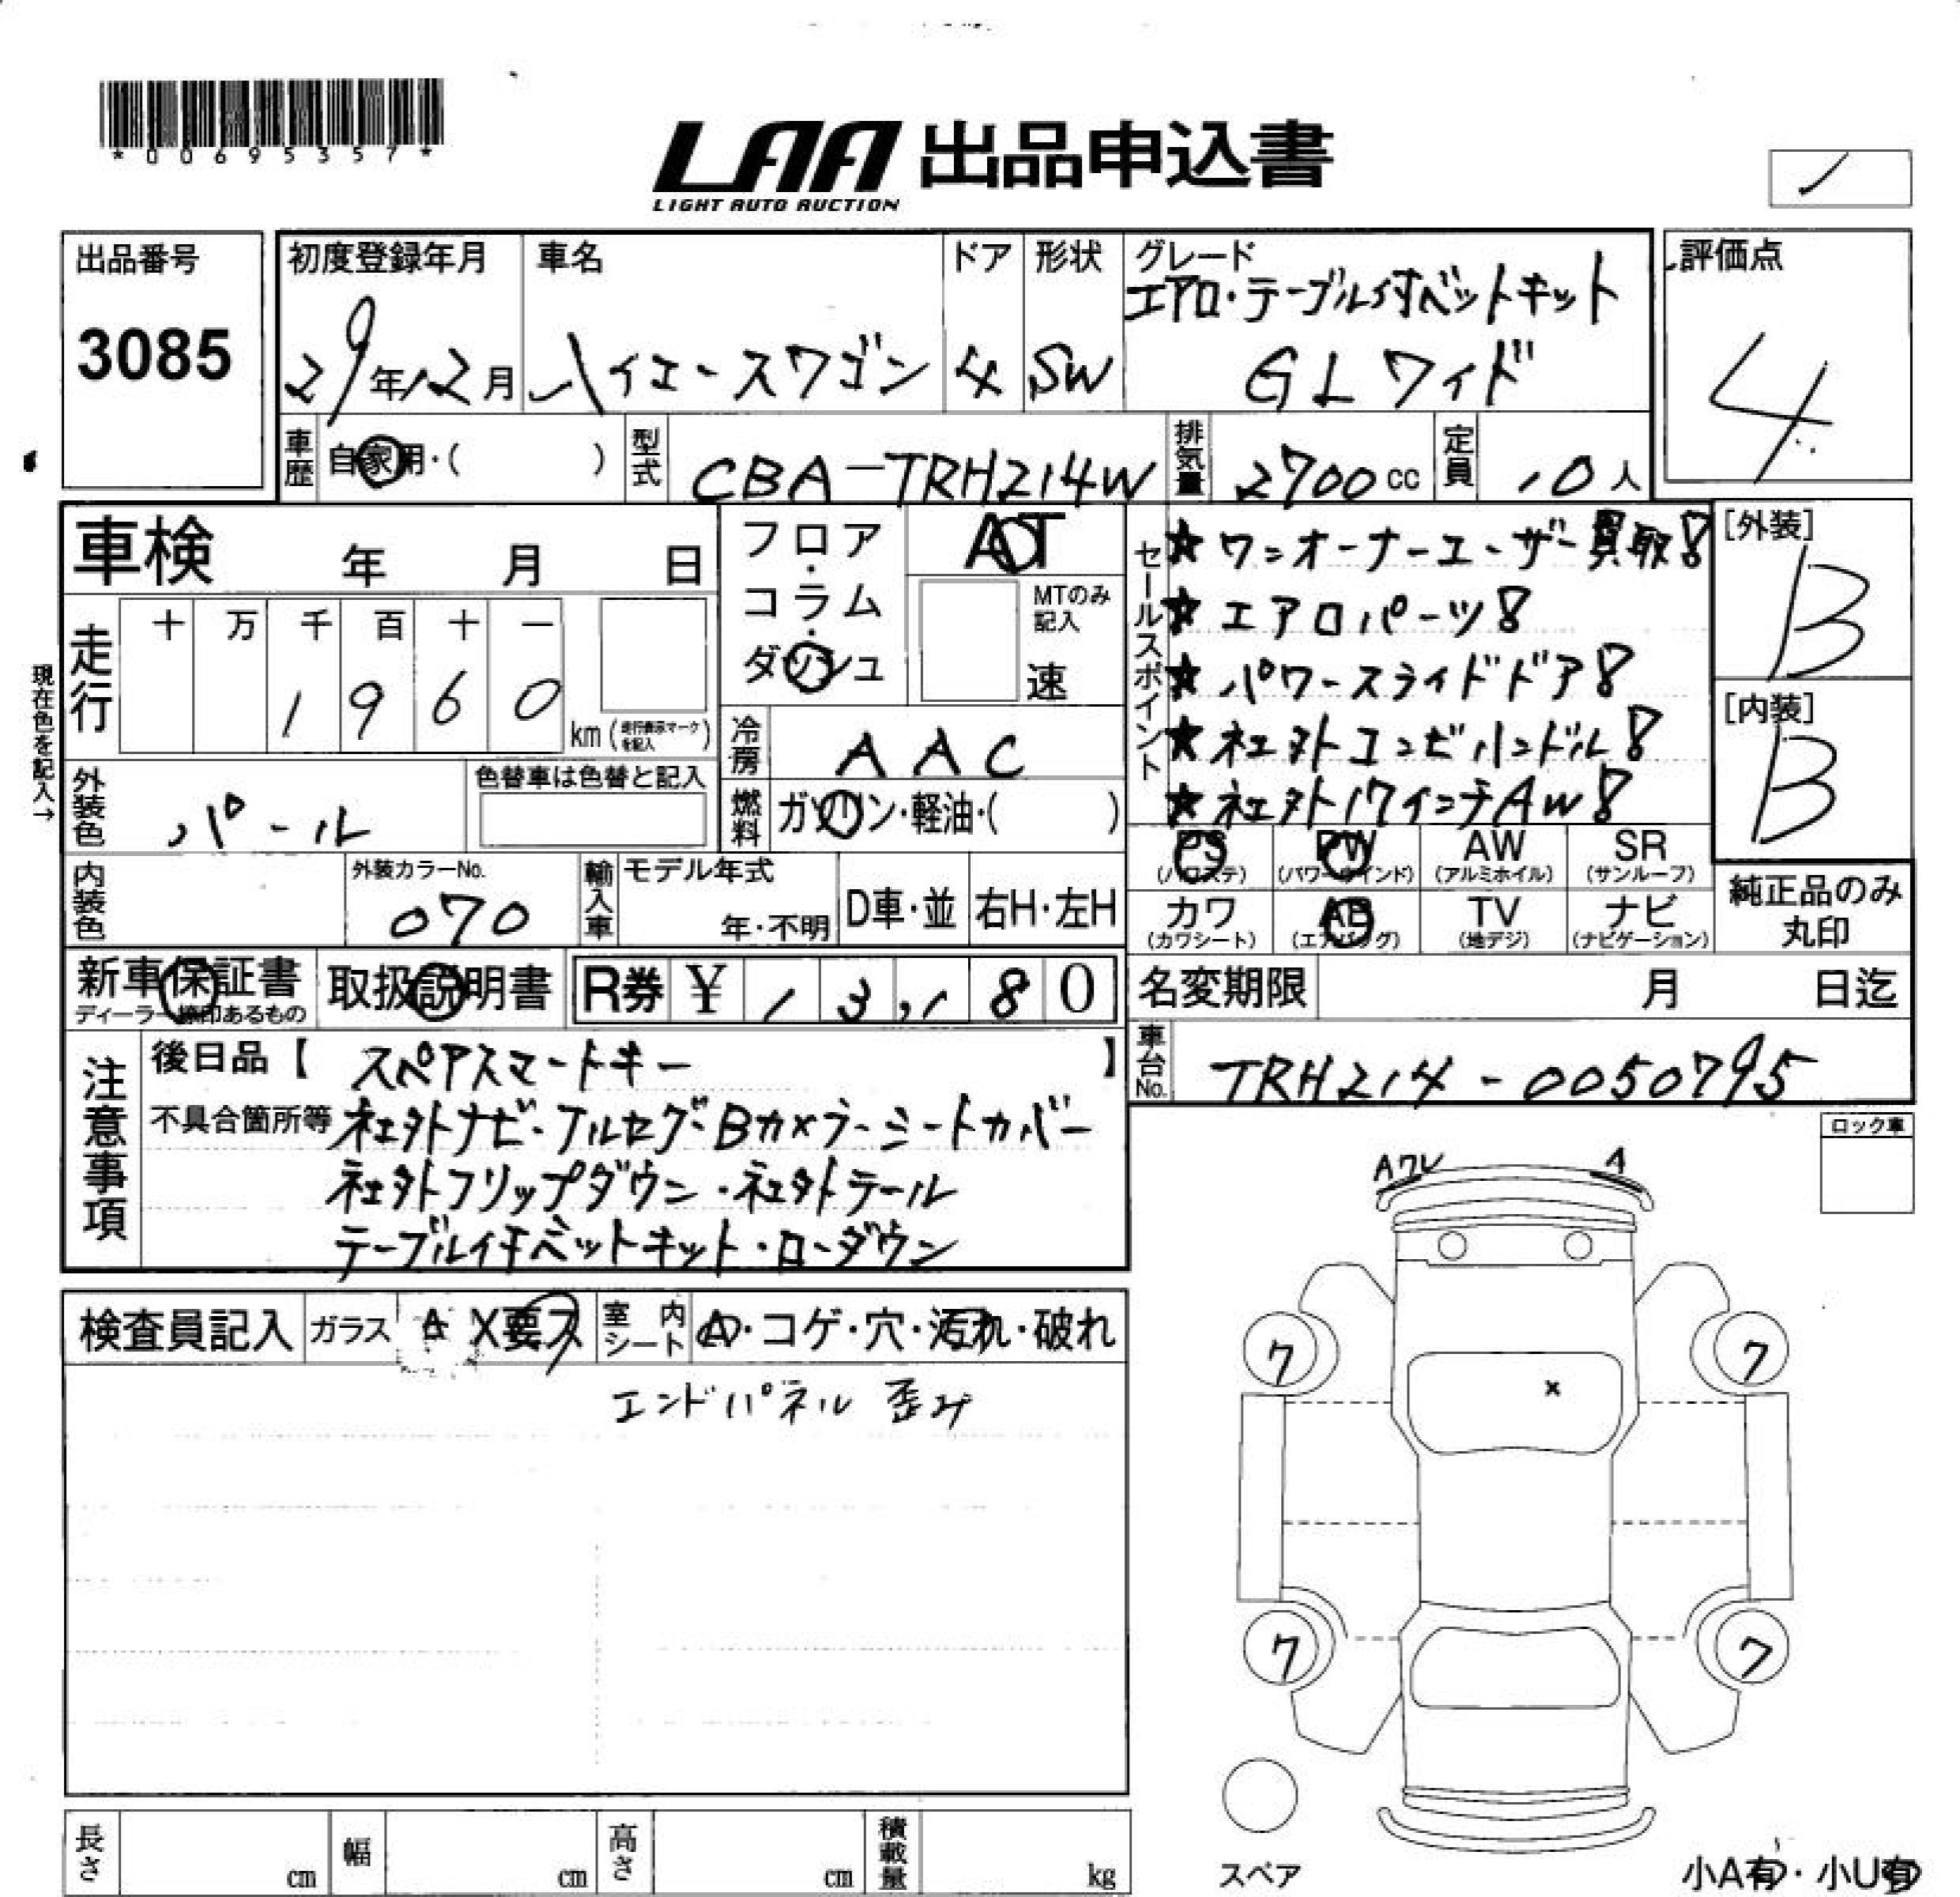 *00695357*
LAA 出品申込書
LIGHT AUTO AUCTION
出品番号
3085
初度登録年月
29年12月
車名
ハイエースワゴン
ドア
4
形状
SW
グレード
エアロ・テーブル付ベットキット
GLワイド
評価点
4
車歴
自家用・( )
型式
CBA-TRH214W
排気量
2700cc
定員
10人
車検 年 月 日
フロア・コラム・ダッシュ
AT
MTのみ記入
速
セールスポイント
★ワンオーナーユーザー買取!
★エアロパーツ!
★パワースライドドア!
★社外コンビハンドル!
★社外17インチAW!
[外装]
B
[内装]
B
走行
十 万 千 百 十 一
1 9 6 0
km(走行表示マークを記入)
現在色を記入→
外装色
パール
色替車は色替と記入
冷房
AAC
燃料
ガソリン・軽油・( )
PS
(パワステ)
PW
(パワーウインド)
AW
(アルミホイル)
SR
(サンルーフ)
カワ
(カワシート)
AB
(エアバッグ)
TV
(地デジ)
ナビ
(ナビゲーション)
純正品のみ
丸印
内装色
外装カラーNo.
070
輸入車
モデル年式
年・不明
D車・並
右H・左H
新車保証書
ディーラー捺印あるもの
取扱説明書
R券 ¥ 13,180
名変期限 月 日迄
車台No.
TRH214-0050795
注意事項
後日品【 スペアスマートキー 】
不具合箇所等 社外ナビ・フルセグ・Bカメラ・シートカバー
社外フリップダウン・社外テール
テーブル付ベットキット・ローダウン
ロック車
検査員記入
ガラス A X要ス
室内シート
A・コゲ・穴・汚れ・破れ
エンドパネル 歪み
Aワレ A
ワ ワ
×
ワ ワ
スペア
長さ cm
幅 cm
高さ cm
積載量 kg
小A有・小U有